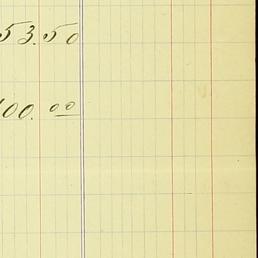 53.50
100.00